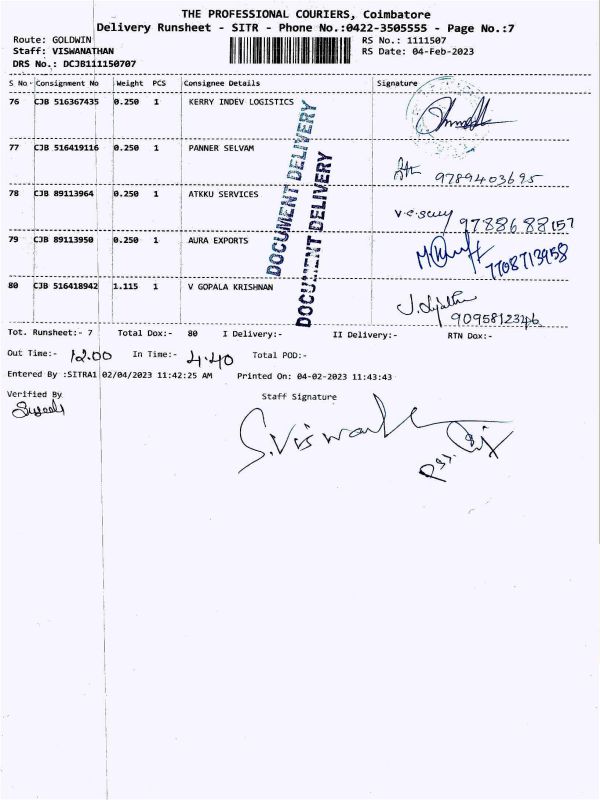 THE PROFESSIONAL COURIERS, Coimbatore
Delivery Runsheet - SITR - Phone No.:0422-3505555 - Page No.:7
Route: GOLDWIN RS No.: 1111507
Staff: VISWANATHAN RS Date: 04-Feb-2023
DRS No.: DCJB111150707
S No Consignment No Weight PCS Consignee Details Signature
76 CJB 516367435 0.250 1 KERRY INDEV LOGISTICS
77 CJB 516419116 0.250 1 PANNER SELVAM
9789403695
78 CJB 89113964 0.250 1 ATKKU SERVICES
9788688157
79 CJB 89113950 0.250 1 AURA EXPORTS
7708713958
80 CJB 516418942 1.115 1 V GOPALA KRISHNAN
9095812346
DOCUMENT DELIVERY
DOCUMENT DELIVERY
Tot. Runsheet:- 7 Total Dox:- 80 I Delivery:- II Delivery:- RTN Dox:-
Out Time:- 12.00 In Time:- 4.40 Total POD:-
Entered By :SITRA1 02/04/2023 11:42:25 AM Printed On: 04-02-2023 11:43:43
Verified By Staff Signature
S.Viswa